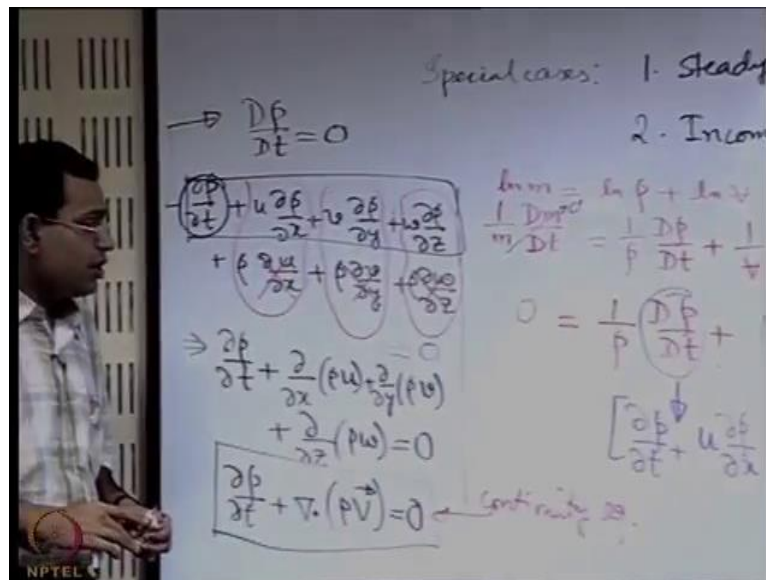 Special cases: 1. Steady
2. Incom
→ Dρ/Dt = 0
∂ρ/∂t + u ∂ρ/∂x + v ∂ρ/∂y + w ∂ρ/∂z
+ ρ ∂u/∂x + ρ ∂v/∂y + ρ ∂w/∂z
= 0
⇒ ∂ρ/∂t + ∂/∂x (ρu) + ∂/∂y (ρv)
+ ∂/∂z (ρw) = 0
∂ρ/∂t + ∇. (ρV⃗) = 0 ← continuity eq.
ln m = ln ρ + ln V
1/m Dm/Dt = 1/ρ Dρ/Dt + 1/V
0
0 = 1/ρ Dρ/Dt +
[∂ρ/∂t + u ∂ρ/∂x
NPTEL